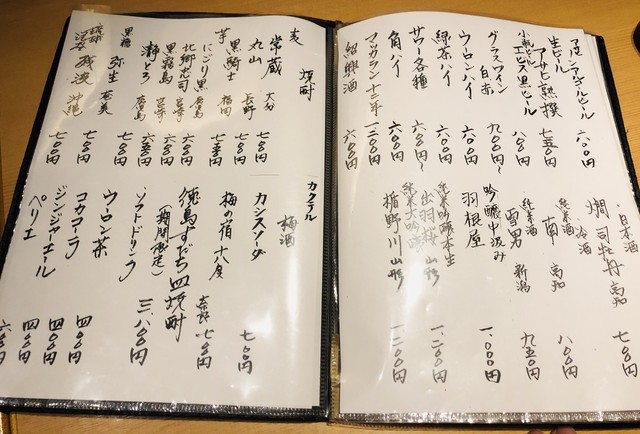 ノンアルコールビール 六〇〇円
生ビール
アサヒ熟撰 七五〇円
小瓶ビール
エビス黒ビール 八〇〇円
グラスワイン
白・赤 九〇〇円〜
ウーロンハイ 六〇〇円
緑茶ハイ 六〇〇円
サワー各種 六〇〇円〜
角ハイ 六〇〇円
マッカラン十二年 一、二〇〇円
紹興酒 六〇〇円
日本酒
燗 司牡丹 高知 七〇〇円
冷酒
純米酒
南 高知 八〇〇円
純米酒
雪男 新潟 九五〇円
吟醸中汲み
羽根屋 一、〇〇〇円
純米吟醸本生
出羽桜 山形 一、二〇〇円
純米大吟醸
楯野川 山形 一、二〇〇円
焼酎
麦
常蔵 大分 七〇〇円
丸山 長野 七〇〇円
黒騎士 福岡 七五〇円
芋
にごり黒 広島
北郷忠司 宮崎 六〇〇円
黒霧島 宮崎 六〇〇円
瀞とろ 鹿児島 六五〇円
黒糖
弥生 奄美 七〇〇円
琉球泡盛
残波 沖縄 七〇〇円
カクテル
梅酒
カシスソーダ 七〇〇円
梅の宿 六度 奈良 七〇〇円
徳島すだち 皿焼酎
(期間限定) 三、八〇〇円
ソフトドリンク
ウーロン茶 四〇〇円
コカコーラ 四〇〇円
ジンジャエール 四〇〇円
ペリエ 六〇〇円